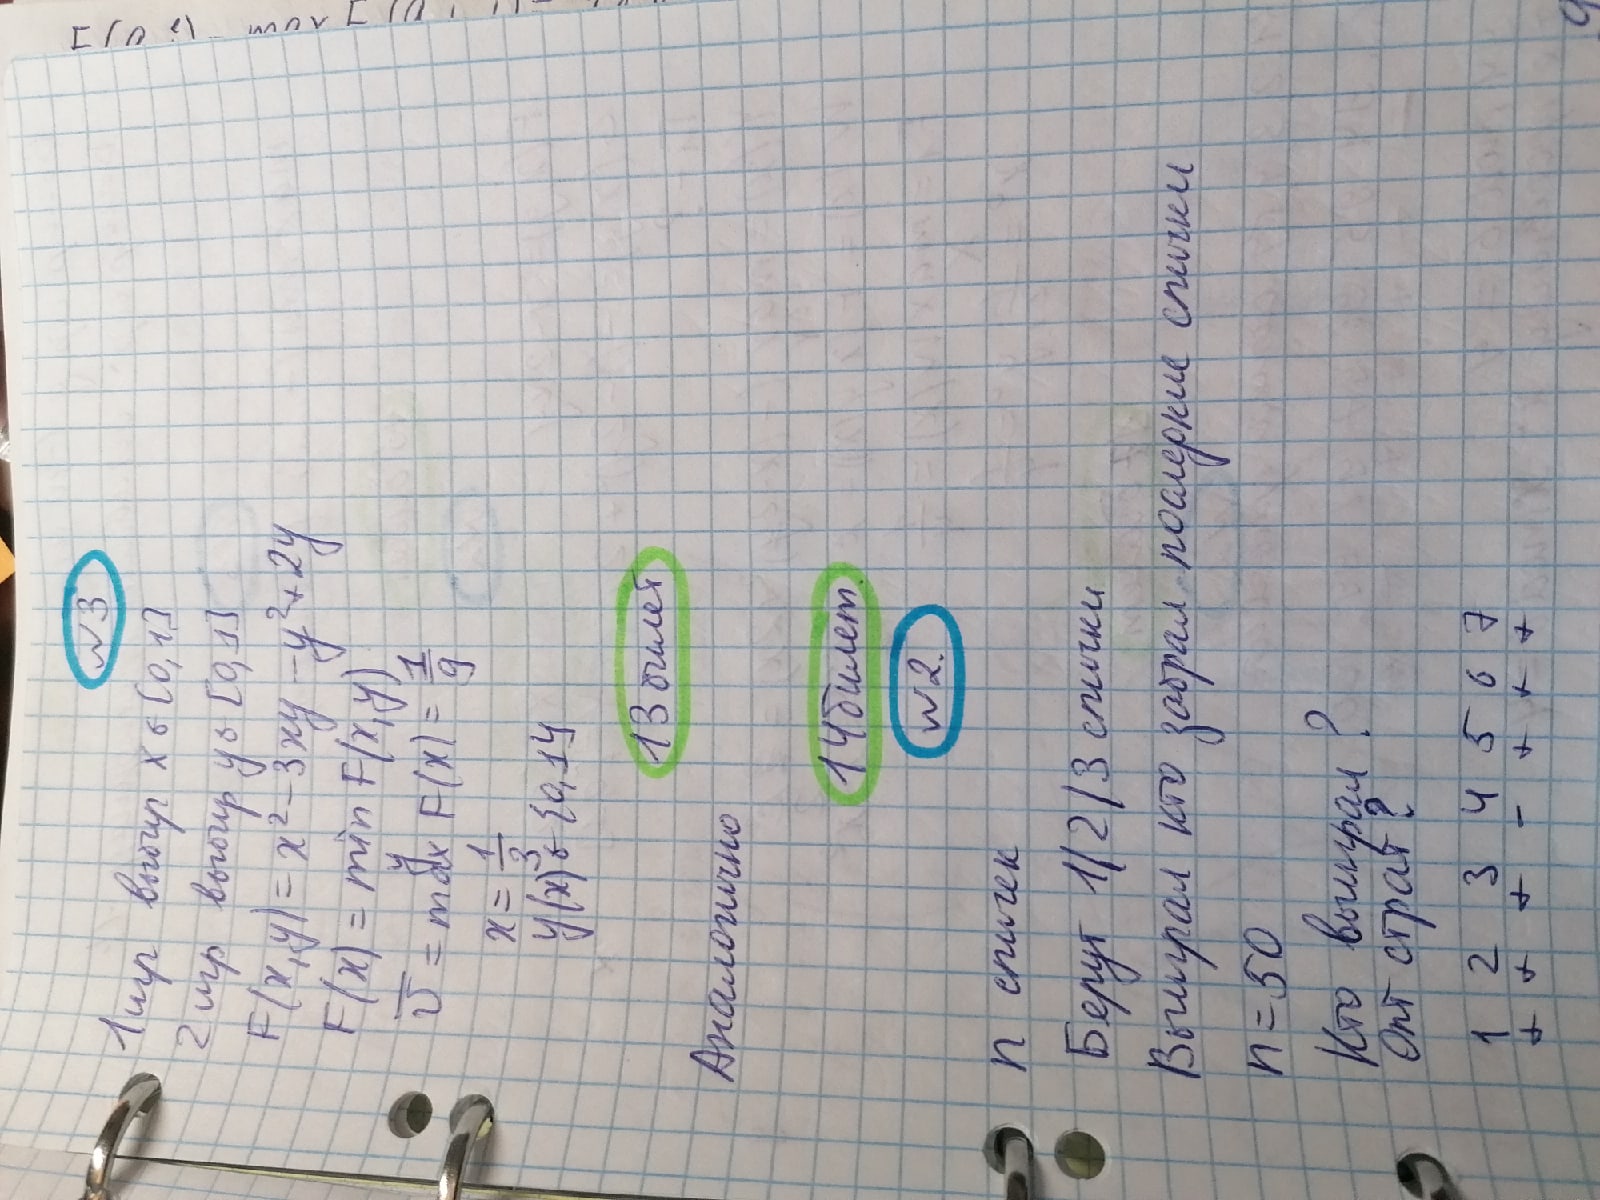 №3
1 игр выбир x ∈ [0,1]
2 игр выбир y ∈ [0,1]
F(x,y) = x² - 3xy - y² + 2y
F(x) = min F(x,y)
y
v̅ = max F(x) = 1/9
x = 1/3
y(x) ∈ {0,1}
13 билет
Аналогично
14 билет
№2.
n спичек
Берут 1/2/3 спички
Выиграл кто забрал последние спички
n = 50
Кто выиграл?
Опт страт?
1 2 3 4 5 6 7
+ + + - + + +